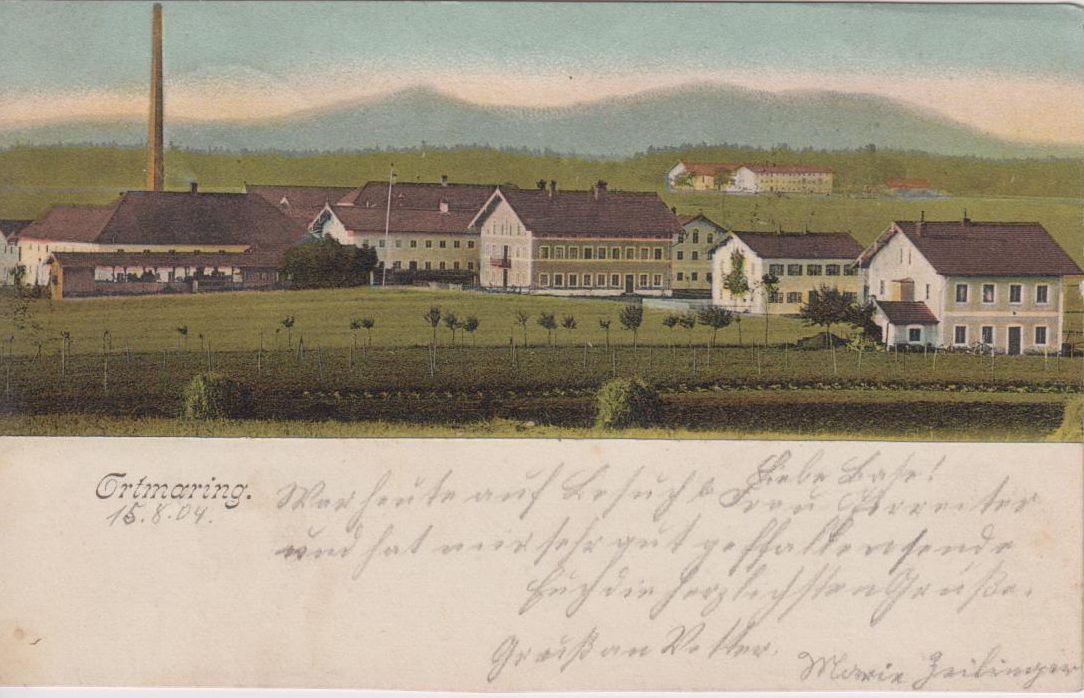 Ortmaring.
15.8.04.
Liebe Base!
War heute auf Besuch b. Frau
und hat mir sehr gut geffallen sende
Euch die herzlichsten Grüße.
Gruß an Vetter.
Marie Zeilinger